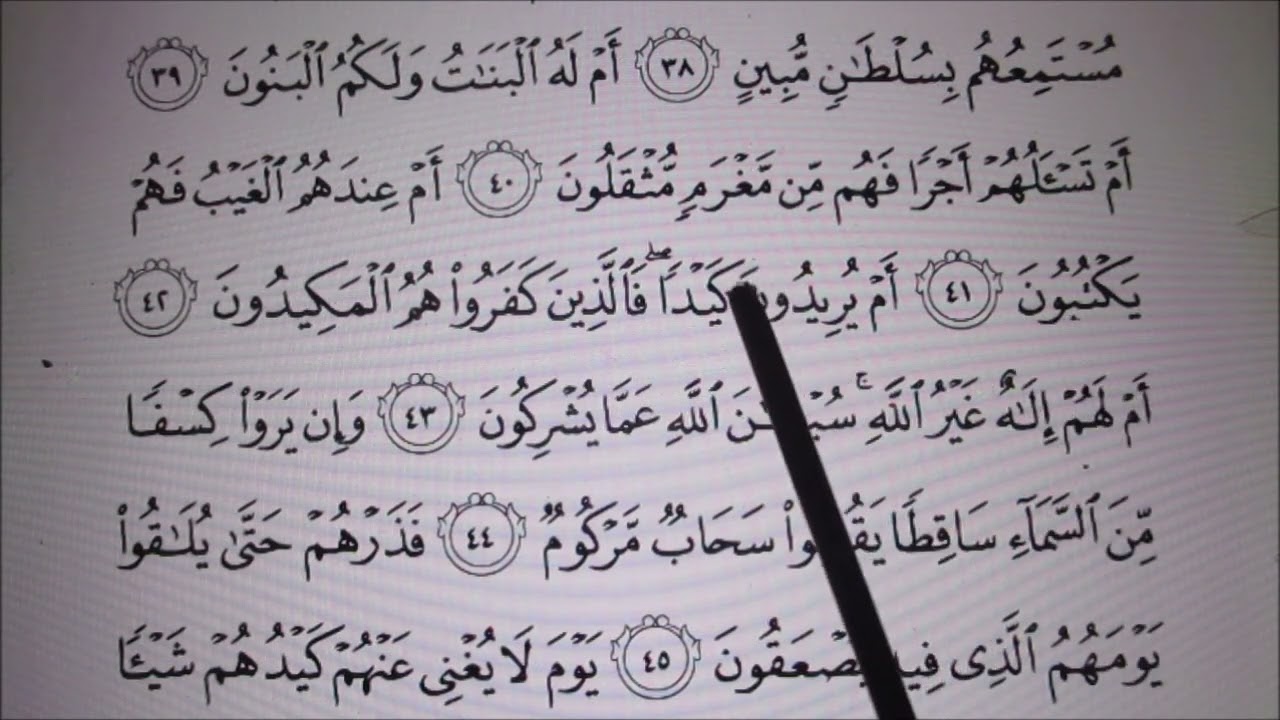 مُسْتَمِعُهُم بِسُلْطَٰنٍ مُّبِينٍ ٣٨ أَمْ لَهُ ٱلْبَنَٰتُ وَلَكُمُ ٱلْبَنُونَ ٣٩
أَمْ تَسْـَٔلُهُمْ أَجْرًا فَهُم مِّن مَّغْرَمٍ مُّثْقَلُونَ ٤٠ أَمْ عِندَهُمُ ٱلْغَيْبُ فَهُمْ
يَكْتُبُونَ ٤١ أَمْ يُرِيدُونَ كَيْدًا ۖ فَٱلَّذِينَ كَفَرُوا۟ هُمُ ٱلْمَكِيدُونَ ٤٢
أَمْ لَهُمْ إِلَٰهٌ غَيْرُ ٱللَّهِ ۚ ٱللَّهِ عَمَّا يُشْرِكُونَ ٤٣ وَإِن يَرَوْا۟ كِسْفًا
مِّنَ ٱلسَّمَآءِ سَاقِطًا سَحَابٌ مَّرْكُومٌ ٤٤ فَذَرْهُمْ حَتَّىٰ يُلَٰقُوا۟
يَوْمَهُمُ ٱلَّذِى فِيهِ يُصْعَقُونَ ٤٥ يَوْمَ لَا يُغْنِى عَنْهُمْ كَيْدُهُمْ شَيْـًٔا